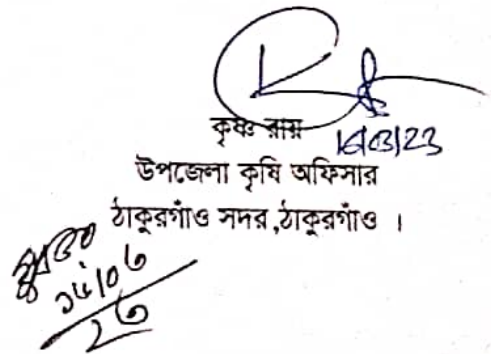 কৃষ্ণ রায়
16/03/23
উপজেলা কৃষি অফিসার
ঠাকুরগাঁও সদর,ঠাকুরগাঁও ।
১৬/০৩
২৩